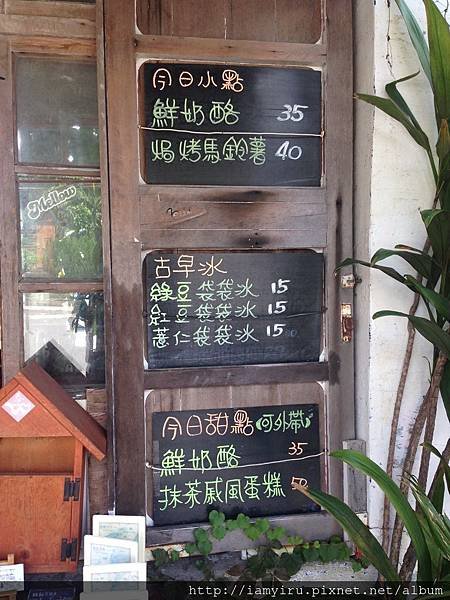 今日小點
鮮奶酪 35
焗烤馬鈴薯 40
Mellow
古早冰
綠豆袋袋冰 15
紅豆袋袋冰 15
薏仁袋袋冰 15
今日甜點 可外帶
鮮奶酪 35
抹茶戚風蛋糕 50
http://iamyiru.pixnet.net/album